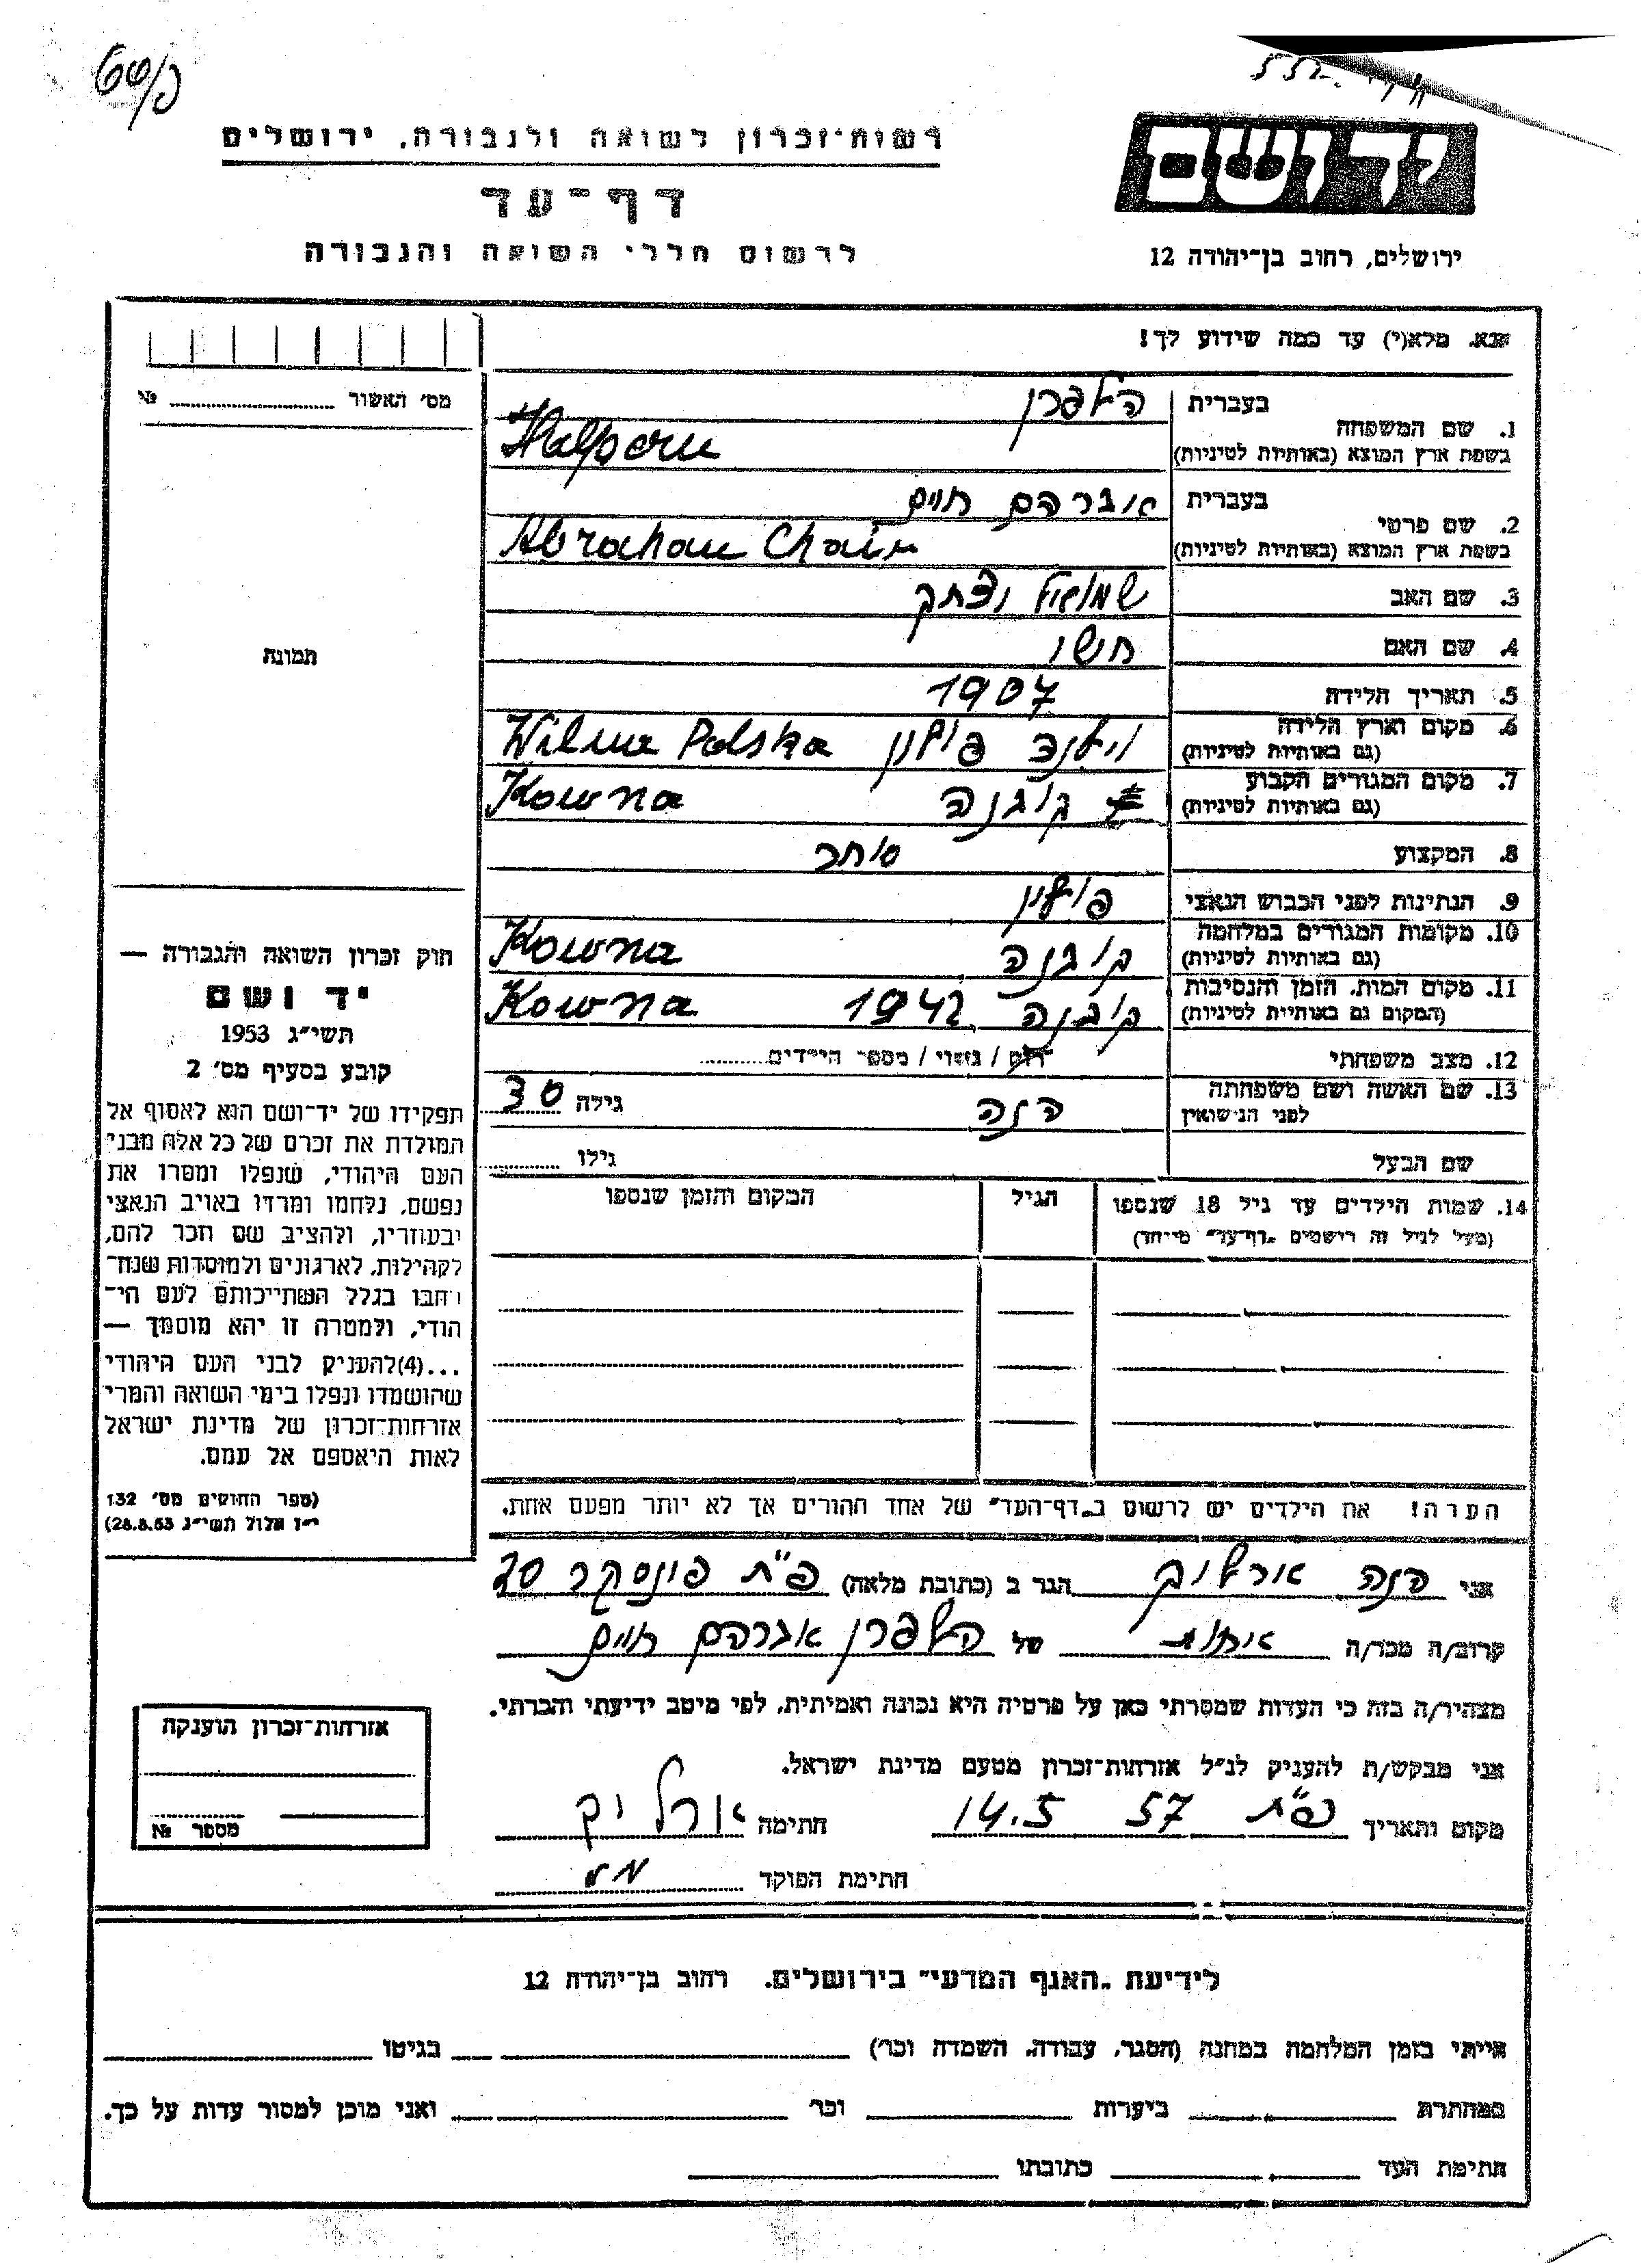 רשות־זכרון לשואה ולגבורה, ירושלים
דף־עד
לרשום חללי השואה והגבורה
יד ושם
ירושלים, רחוב בן־יהודה 12
נא. מלא(י) עד כמה שידוע לך!
מס׳ האשור № ..........
תמונה
1. שם המשפחה
בעברית הלפרן
בשפת ארץ המוצא (באותיות לטיניות) Halpern
2. שם פרטי
בעברית אברהם חיים
בשפת ארץ המוצא (באותיות לטיניות) Abraham Chaim
3. שם האב שמואל יצחק
4. שם האם
5. תאריך הלידה 1907
6. מקום וארץ הלידה
(גם באותיות לטיניות) וילנה פולין Wilna Polska
7. מקום המגורים הקבוע
(גם באותיות לטיניות) קובנה Kowna
8. המקצוע סוחר
9. הנתינות לפני הכבוש הנאצי פולין
10. מקומות המגורים במלחמה
(גם באותיות לטיניות) קובנה Kowna
11. מקום המות, הזמן והנסיבות
(המקום גם באותיות לטיניות) קובנה 1942 Kowna
12. מצב משפחתי רוק / נשוי / מספר הילדים..........
13. שם האשה ושם משפחתה
לפני הנישואין הנה גילה 30
שם הבעל גילו ..........
14. שמות הילדים עד גיל 18 שנספו הגיל המקום והזמן שנספו
(מעל לגיל זה רישמים „דף־עד״ מיוחד)
הערה! את הילדים יש לרשום ב„דף־העד״ של אחד ההורים אך לא יותר מפעם אחת.
חוק זכרון השואה והגבורה —
יד ושם
תשי״ג 1953
קובע בסעיף מס׳ 2
תפקידו של יד־ושם הוא לאסוף אל
המולדת את זכרם של כל אלה מבני
העם היהודי, שנפלו ומסרו את
נפשם, נלחמו ומרדו באויב הנאצי
ובעוזריו, ולהציב שם וזכר להם,
לקהילות, לארגונים ולמוסדות שנח־
רבו בגלל השתייכותם לעם הי־
הודי, ולמטרה זו יהא מוסמך —
...(4)להעניק לבני העם היהודי
שהושמדו ונפלו בימי השואה והמרי
אזרחות־זכרון של מדינת ישראל
לאות היאספם אל עמם.
(ספר החוקים מס׳ 132
י״ז אלול תשי״ג 28.8.53)
אני הנה ארליך הגר ב (כתובת מלאה) פ״ת פינסקר 20
קרוב/ה מכר/ה אחות של הלפרן אברהם חיים
מצהיר/ה בזה כי העדות שמסרתי כאן על פרטיה היא נכונה ואמיתית, לפי מיטב ידיעתי והכרתי.
אני מבקש/ת להעניק לנ״ל אזרחות־זכרון מטעם מדינת ישראל.
מקום ותאריך פ״ת 14.5 57 חתימה ארליך
חתימת הפוקד
אזרחות־זכרון הוענקה
מספר №
לידיעת „האגף המדעי״ בירושלים. רחוב בן־יהודה 12
הייתי בזמן המלחמה במחנה (הסגר, עבודה, השמדה וכו׳) בגיטו
במחתרת ביערות וכו׳ ואני מוכן למסור עדות על כך.
חתימת העד כתובתו